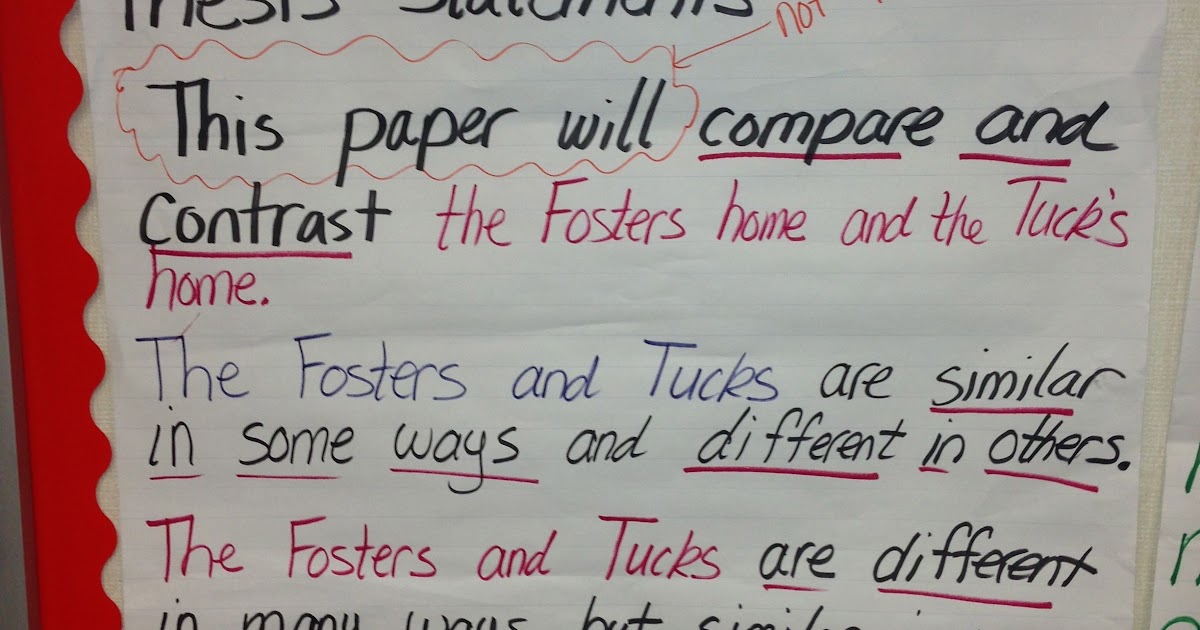 Thesis Statements
not
This paper will compare and
contrast the Fosters home and the Tuck's
home.
The Fosters and Tucks are similar
in some ways and different in others.
The Fosters and Tucks are different
in many ways but similar